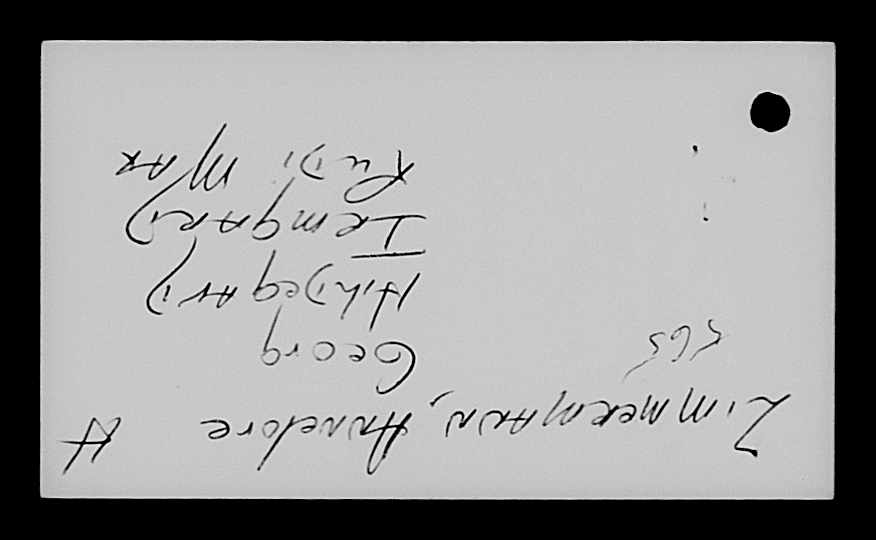 Zimmermann, Annelore A
565
Georg
Hildegard
Irmgard
Rudi Max